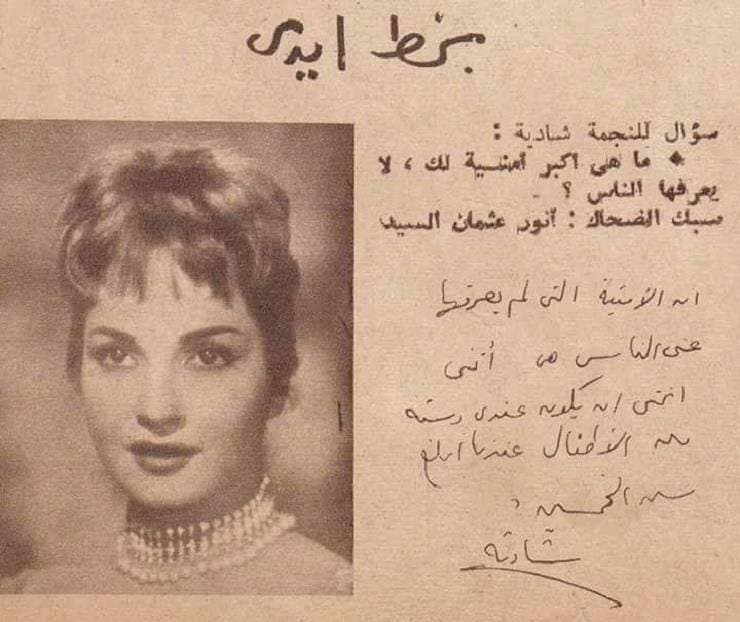 بخط ايدى
سؤال للنجمة شادية :
♦ ما هى اكبر امنية لك ، لا
يعرفها الناس ؟
سبك الضحاك : أنور عثمان السيد
ان الامنية التى لم يعرفها
عنى الناس هى أننى
اتمنى ان يكون عندى دستة
من الأطفال عندما ابلغ
سن الخمسين
شادية